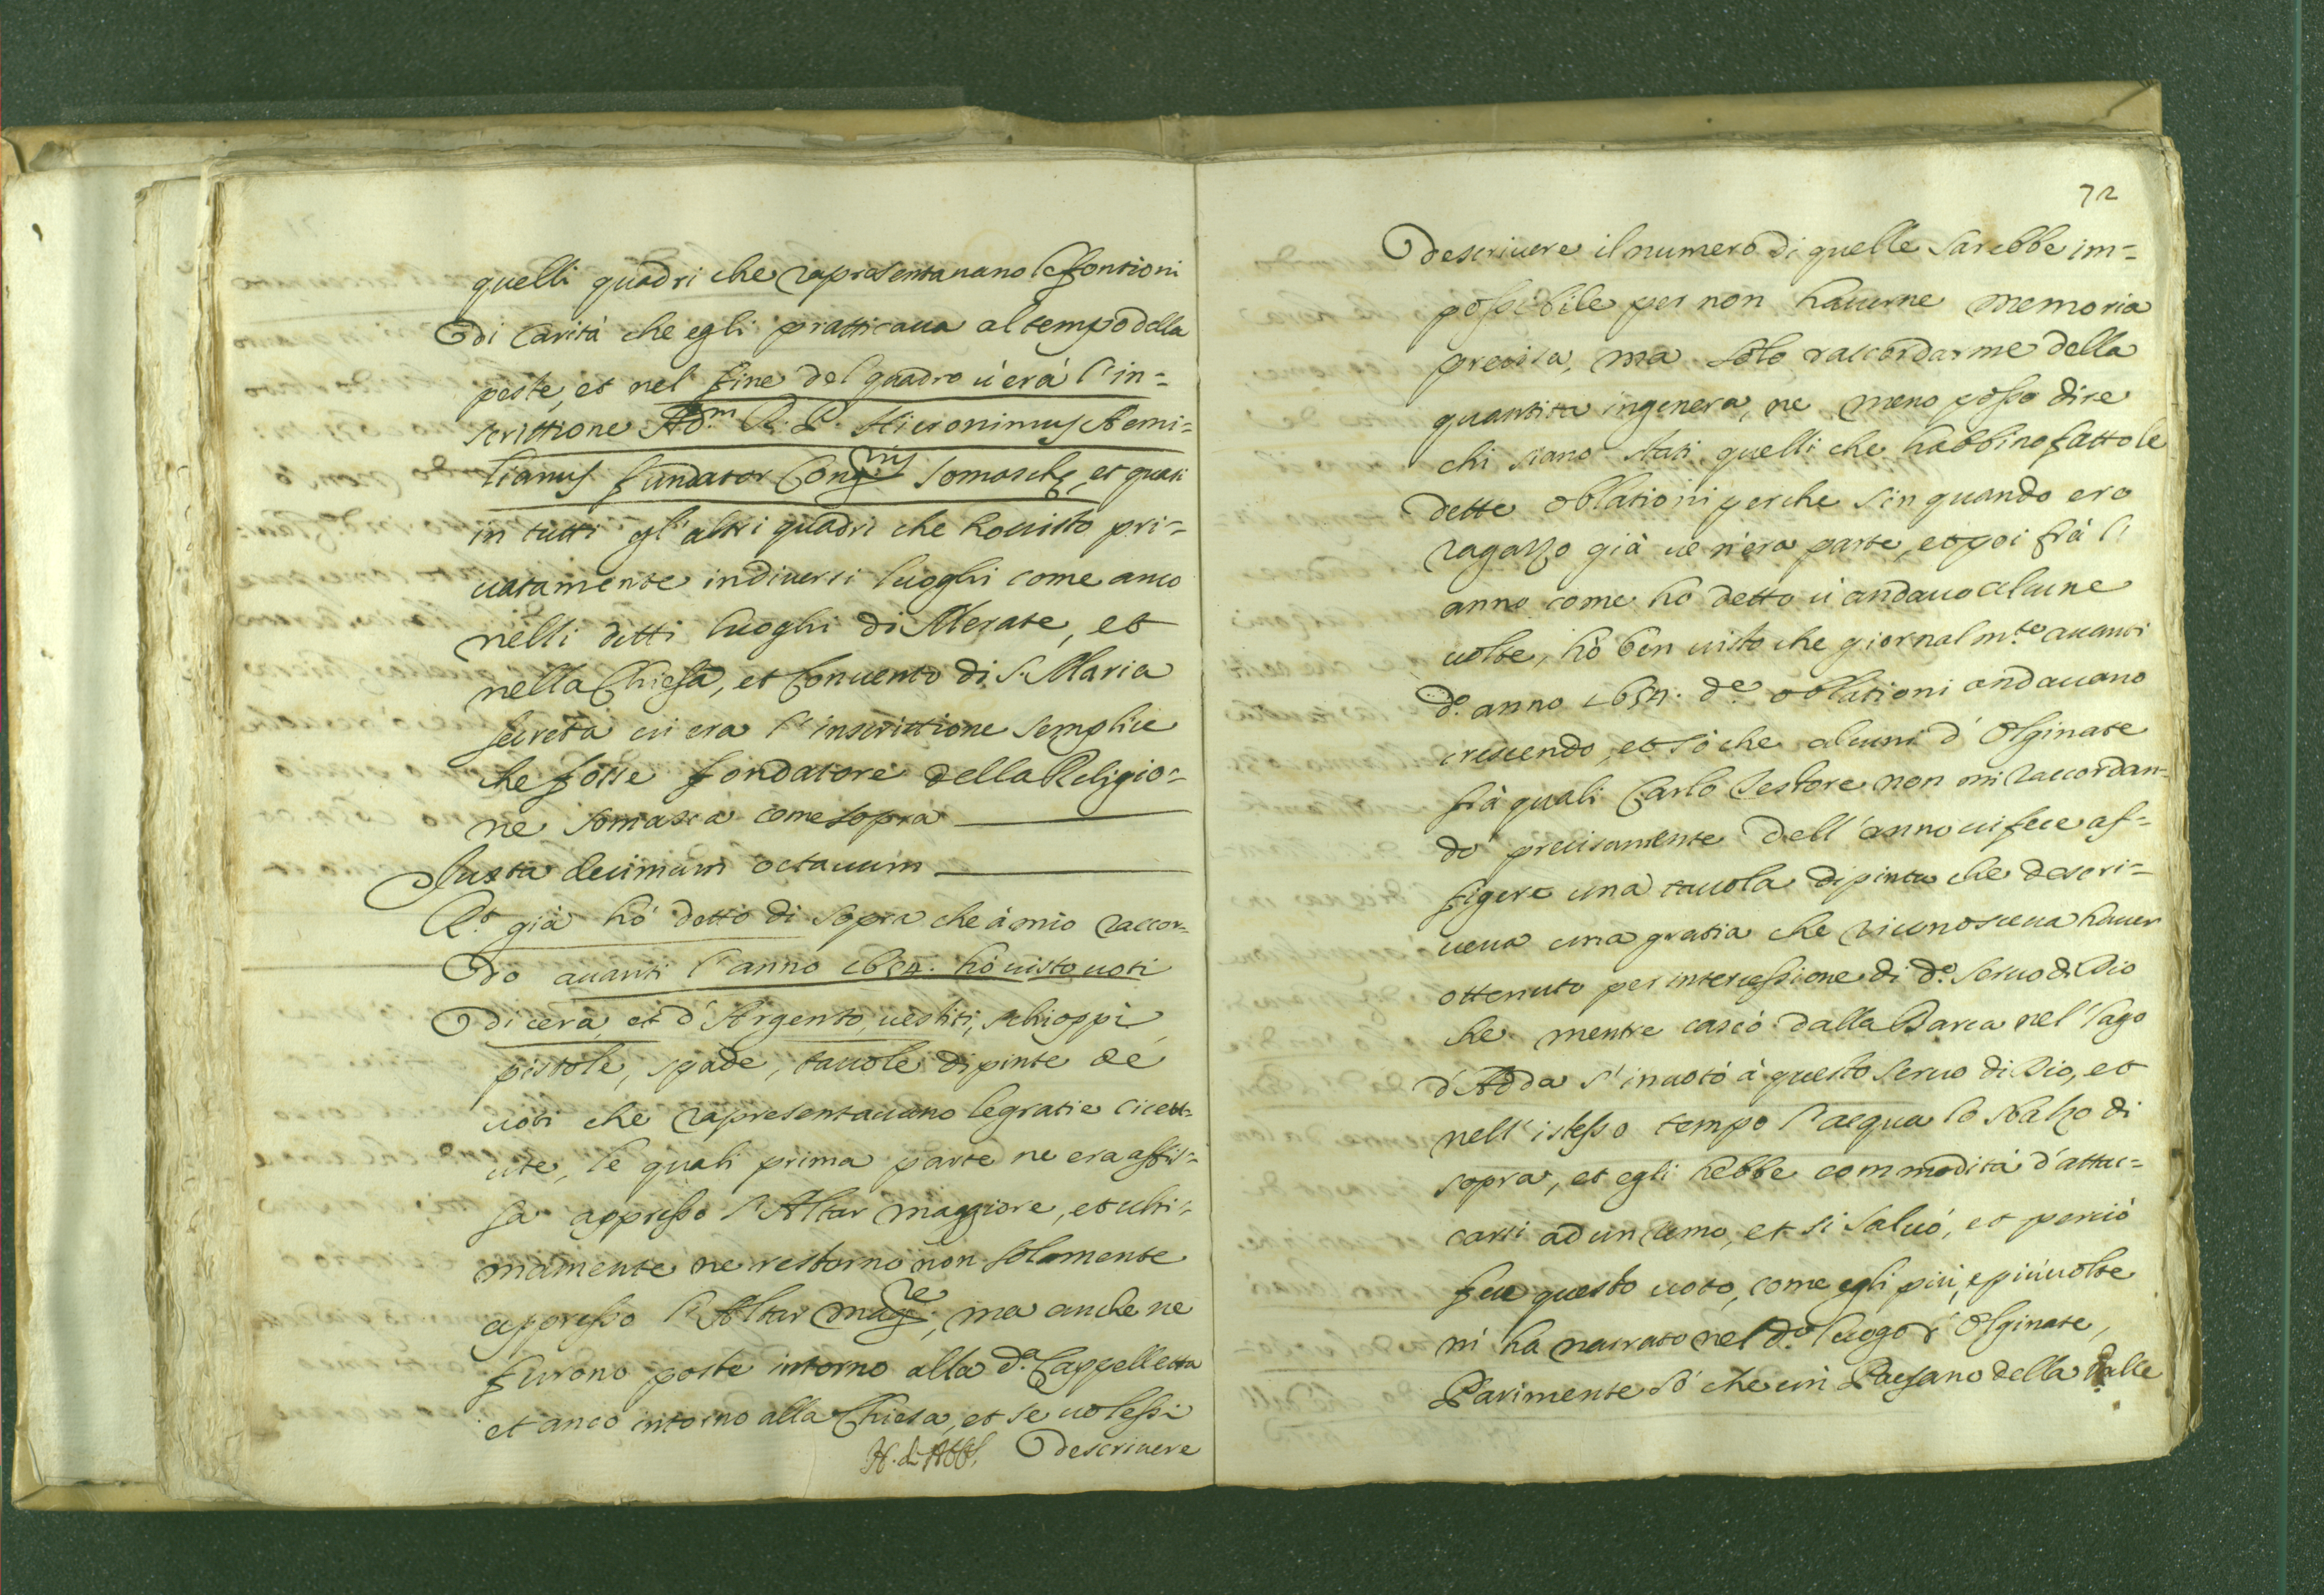 quelli quadri che rapresentauano le fontioni
di Carità che egli pratticaua al tempo della
peste, et nel fine del quadro u'era l'in=
scrittione Ad.m R. P. Hieronimus Aemi=
lianus fundator Cong.nis Somaschę, et quasi
in tutti gl'altri quadri che hò uisto pri=
uatamente in diuersi luoghi come anco
nelli detti luoghi di Merate, et
nella Chiesa, et Conuento di S. Maria
secreta ui era l'inscrittione semplice
che fosse fondatore della Religio=
ne Somasca come sopra
Iuxta decimum octauum
R.t già hò detto di sopra che à mio raccor=
do auanti l'anno 1634. hò uisto uoti
di cera, et d'Argento, uestiti, schioppi
pistole, spade, tauole dipinte de
uoti che rapresentauano le gratie riceu=
ute, le quali prima parte ne era affis=
sa appresso l'Altar maggiore, et ulti=
mamente ne restorno non solamente
appresso l'Altar mag.re, ma anche ne
furono poste intorno alla d.a Cappelletta
et anco intorno alla Chiesa, et se uolessi
descriuere
72
descriuere il numero di quelle sarebbe im=
possibile per non hauerne memoria
precisa, ma solo raccordarme della
quantita in genera, ne meno posso dire
chi siano stati quelli che habbino fatto le
dette oblationi perche sin quando ero
ragazzo già ue n'era parte, et poi frà l'
anno come hò detto u'andauo alcune
uolte, hò ben uisto che giornalm.te auanti
d.o anno 1634. d.e oblationi andauano
crescendo, et sò che alcuni d'Olginate
frà quali Carlo Testore non mi raccordan=
do precisamente dell'anno ui fece af=
figere una tauola dipinta che descri=
ueua una gratia che riconosceua hauer
ottenuto per intercessione di d.o Seruo di Dio
che mentre cascò dalla Barca nel lago
d'Adda s'inuotò à questo Seruo di Dio, et
nell'istesso tempo l'acqua lo sbalzò di
sopra, et egli hebbe commodità d'attac=
carsi ad un ramo, et si saluò, et perciò
fece questo uoto, come egli più, e più uolte
m'ha narrato nel d.o luogo d'Olginate,
Parimente sò che un Paesano della Valle